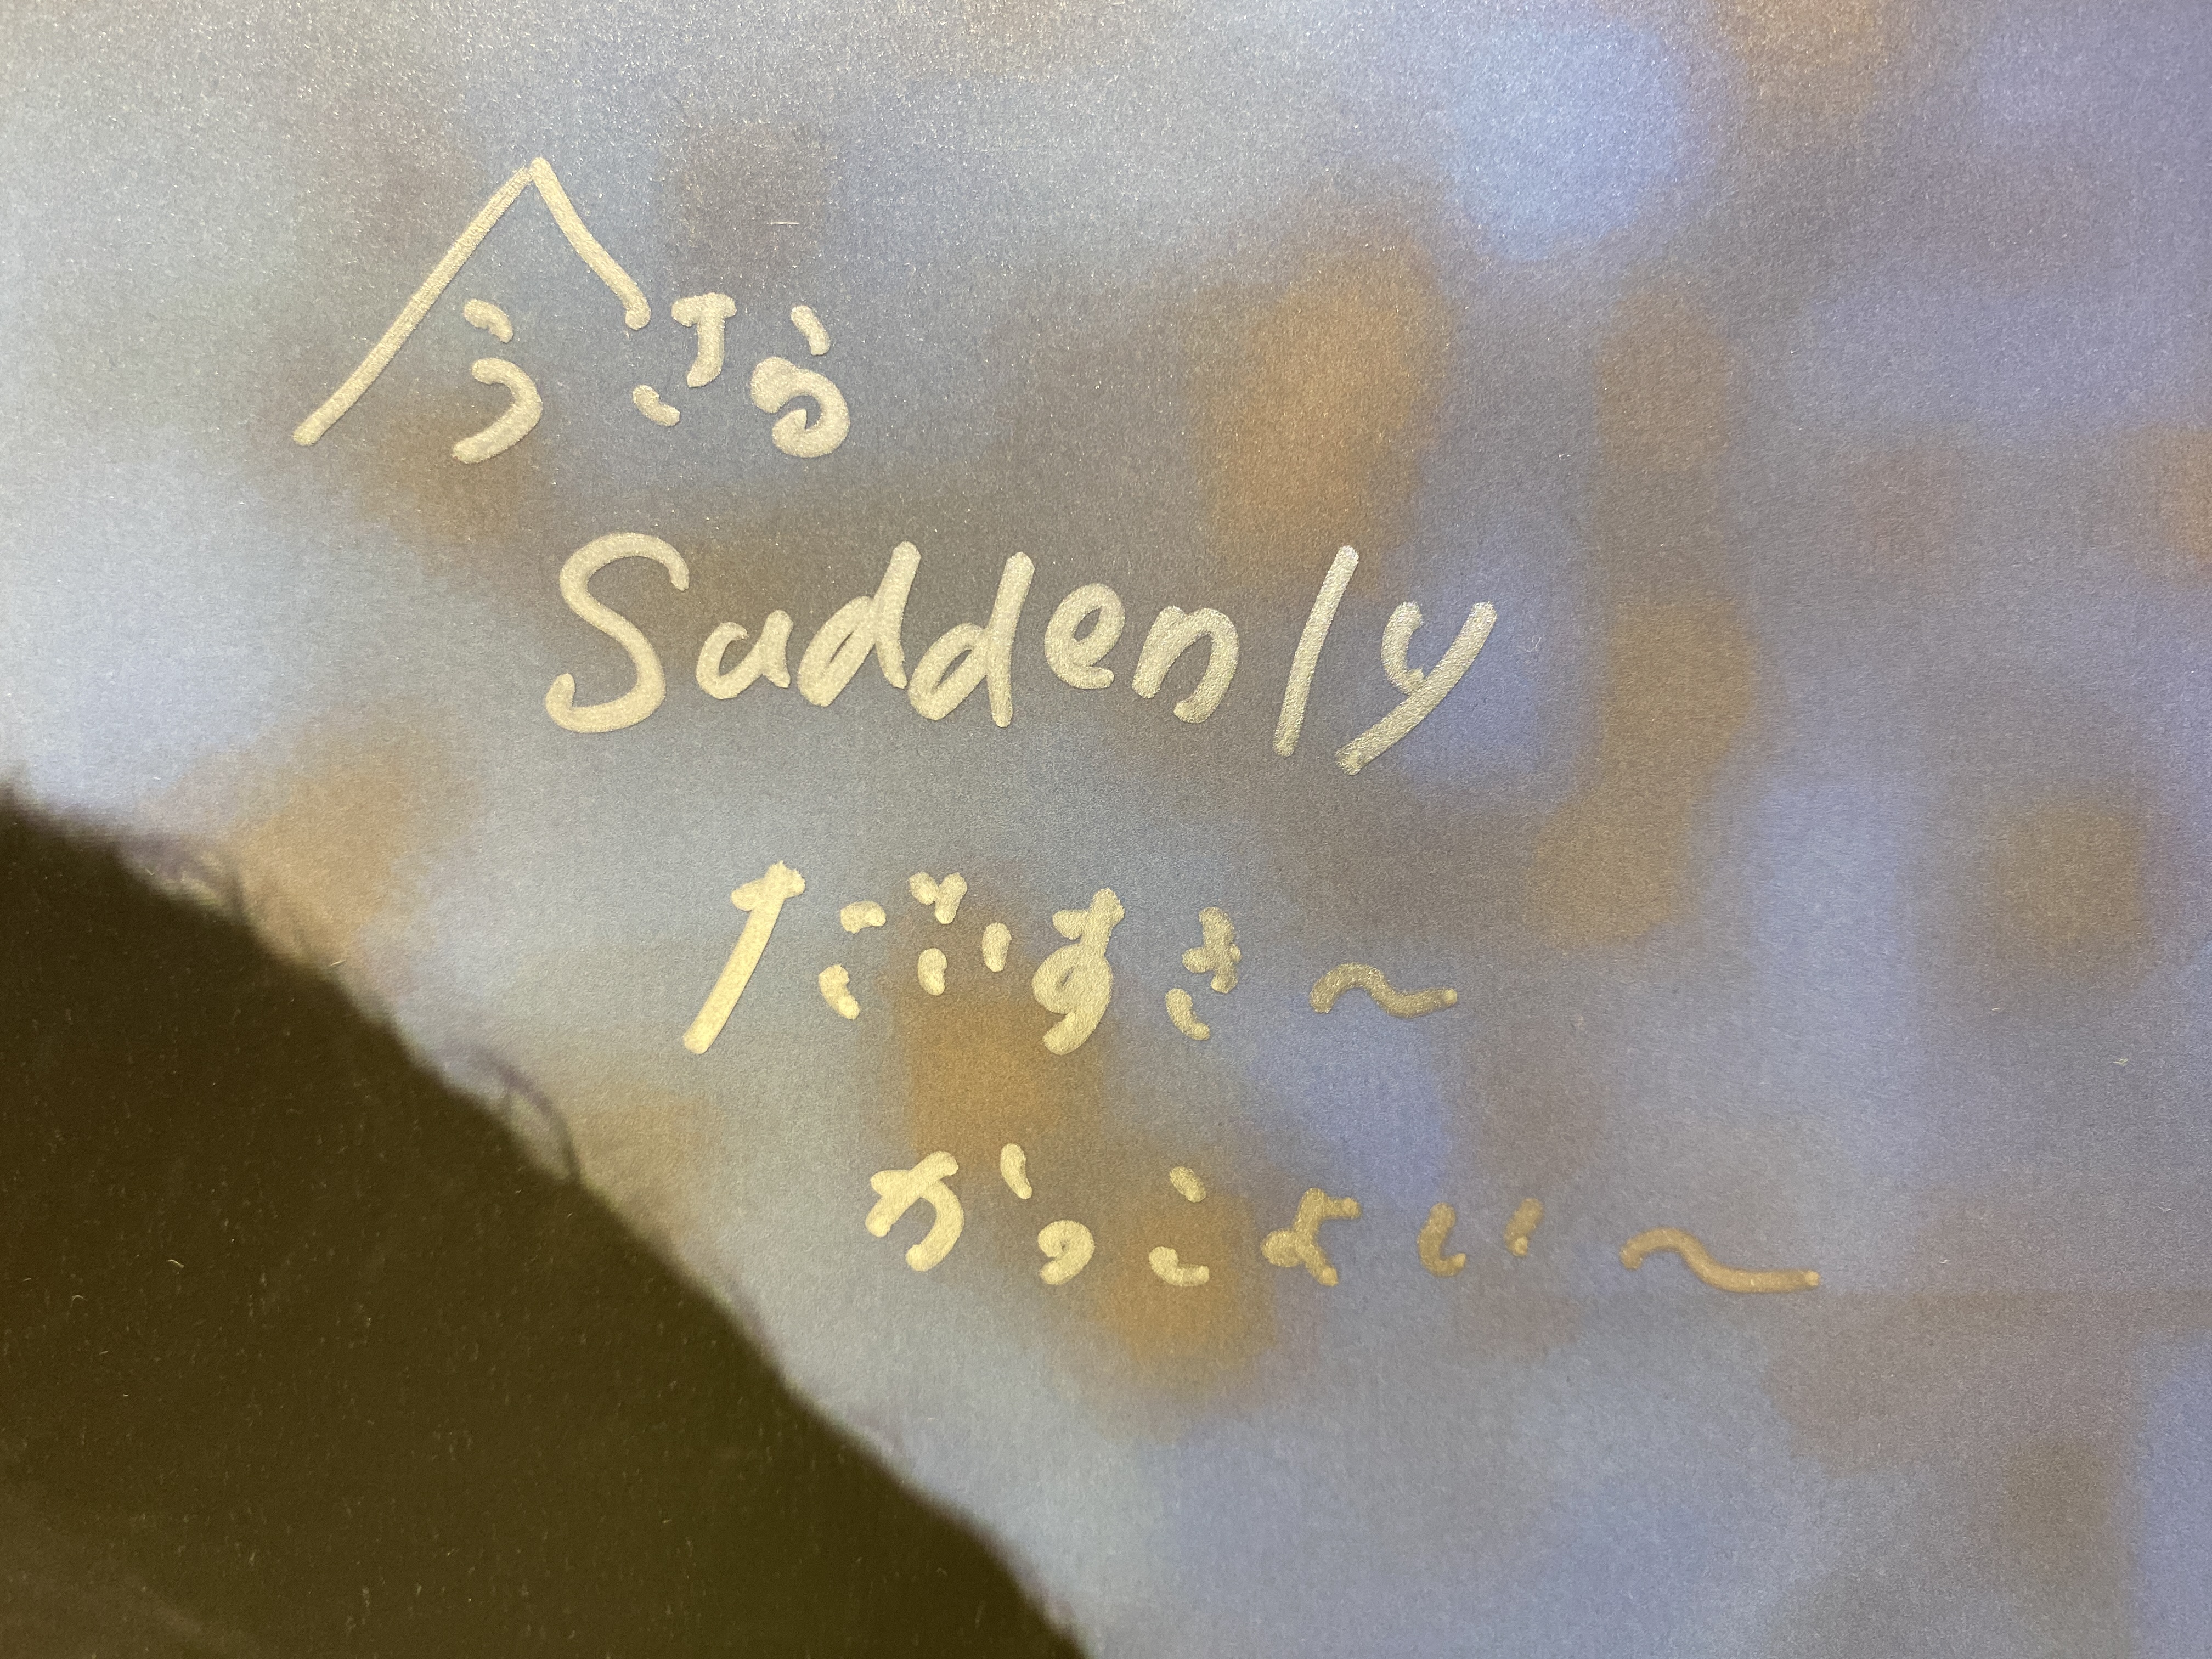 今さら
Suddenly
だいすき〜
かっこよい〜